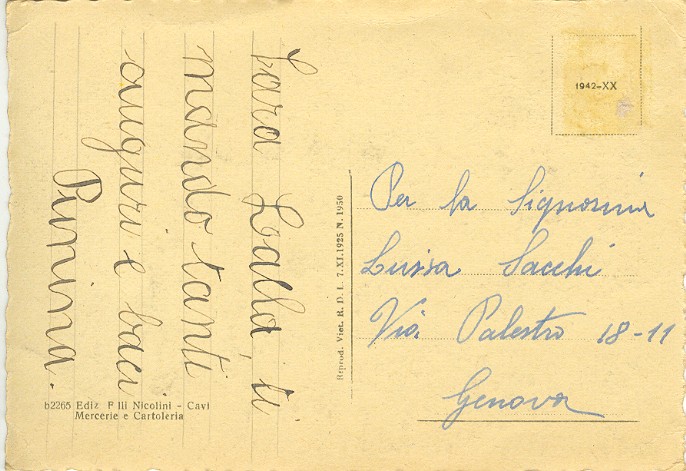 Cara Lalla, ti
mando tanti
auguri e baci
Pinina.
1942-XX
Per la Signorina
Luisa Sacchi
Via Palestro 18-11
Genova
Reprod. Viet. R. D. L. 7.XI.1925 N. 1950
b2265 Ediz F lli Nicolini - Cavi
Mercerie e Cartoleria